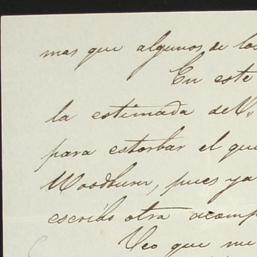 mas que algunos de los
En este
la estimada de V.
para estorbar el que
Woodburn, pues ya
escribo otra acomp
Veo que me